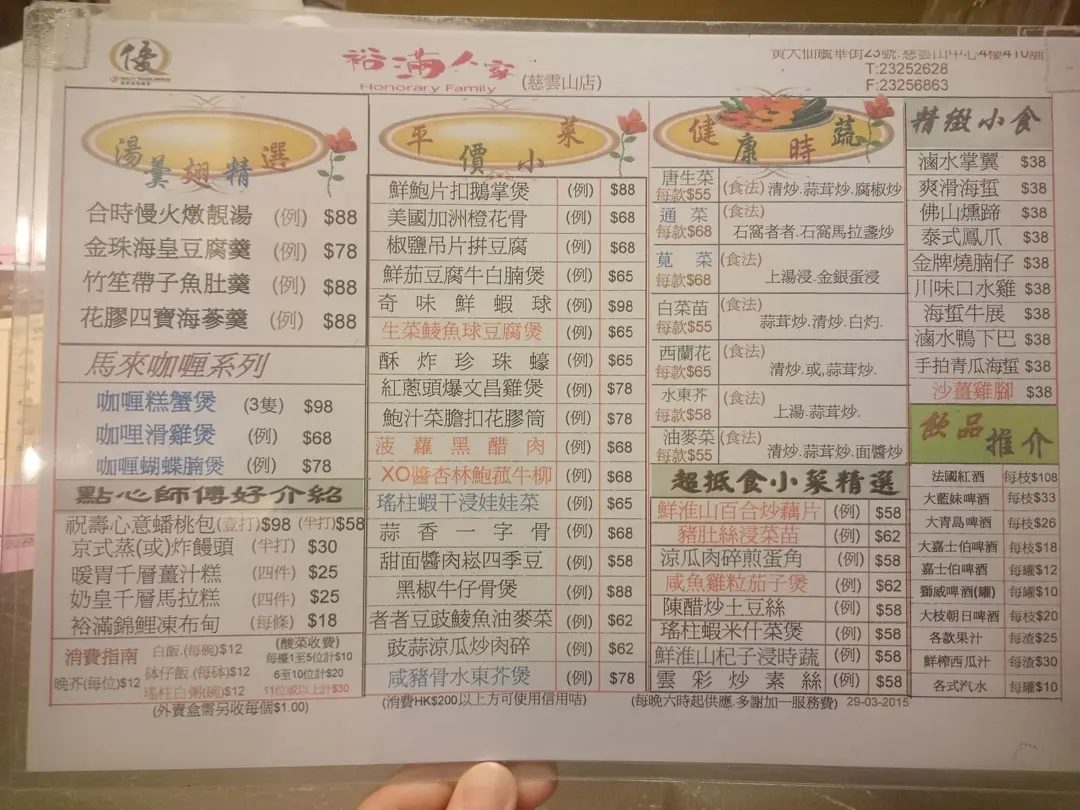 優
裕滿人家
Honorary Family
(慈雲山店)
黃大仙鳳華街23號.慈雲山中心4樓410舖
T:23252628
F:23256863
湯羹翅精選
合時慢火燉靚湯 (例) $88
金珠海皇豆腐羹 (例) $78
竹笙帶子魚肚羹 (例) $88
花膠四寶海蔘羹 (例) $88
馬來咖喱系列
咖喱糕蟹煲 (3隻) $98
咖哩滑雞煲 (例) $68
咖喱蝴蝶腩煲 (例) $78
點心師傅好介紹
祝壽心意蟠桃包(壹打)$98 (半打)$58
京式蒸(或)炸饅頭 (半打) $30
暖胃千層薑汁糕 (四件) $25
奶皇千層馬拉糕 (四件) $25
裕滿錦鯉凍布甸 (每條) $18
消費指南
晚芥(每位)$12
白飯.(每碗)$12
砵仔飯 (每砵)$12
瑤柱白粥(碗)$12
(酸菜收費)
每檯1至5位計$10
6至10位計$20
11位或以上計$30
(外賣盒需另收每個$1.00)
平價小菜
鮮鮑片扣鵝掌煲 (例) $88
美國加洲橙花骨 (例) $68
椒鹽吊片拼豆腐 (例) $68
鮮茄豆腐牛白腩煲 (例) $65
奇味鮮蝦球 (例) $98
生菜鯪魚球豆腐煲 (例) $65
酥炸珍珠蠔 (例) $65
紅蔥頭爆文昌雞煲 (例) $78
鮑汁菜膽扣花膠筒 (例) $78
菠蘿黑醋肉 (例) $68
XO醬杏林鮑菰牛柳 (例) $68
瑤柱蝦干浸娃娃菜 (例) $65
蒜香一字骨 (例) $68
甜面醬肉崧四季豆 (例) $58
黑椒牛仔骨煲 (例) $88
者者豆豉鯪魚油麥菜 (例) $62
豉蒜涼瓜炒肉碎 (例) $62
咸豬骨水東芥煲 (例) $78
(消費HK$200以上方可使用信用咭)
健康時蔬
唐生菜 每款$55 (食法) 清炒.蒜茸炒.腐椒炒
通菜 每款$68 (食法) 石窩者者.石窩馬拉盞炒
莧菜 每款$68 (食法) 上湯浸.金銀蛋浸
白菜苗 每款$55 (食法) 蒜茸炒.清炒.白灼.
西蘭花 每款$65 (食法) 清炒.或.蒜茸炒.
水東芥 每款$58 (食法) 上湯.蒜茸炒.
油麥菜 每款$55 (食法) 清炒.蒜茸炒.面醬炒
超抵食小菜精選
鮮淮山百合炒藕片 (例) $58
豬肚絲浸菜苗 (例) $62
涼瓜肉碎煎蛋角 (例) $58
咸魚雞粒茄子煲 (例) $62
陳醋炒土豆絲 (例) $58
瑤柱蝦米什菜煲 (例) $58
鮮淮山杞子浸時蔬 (例) $58
雲彩炒素絲 (例) $58
(每晚六時起供應.多謝加一服務費) 29-03-2015
精緻小食
滷水掌翼 $38
爽滑海蜇 $38
佛山燻蹄 $38
泰式鳳爪 $38
金牌燒腩仔 $38
川味口水雞 $38
海蜇牛展 $38
滷水鴨下巴 $38
手拍青瓜海蜇 $38
沙薑雞腳 $38
飲品推介
法國紅酒 每枝$108
大藍妹啤酒 每枝$33
大青島啤酒 每枝$26
大嘉士伯啤酒 每枝$18
嘉士伯啤酒 每罐$12
獅威啤酒(罐) 每罐$10
大枝朝日啤酒 每枝$20
各款果汁 每渣$25
鮮榨西瓜汁 每渣$30
各式汽水 每罐$10